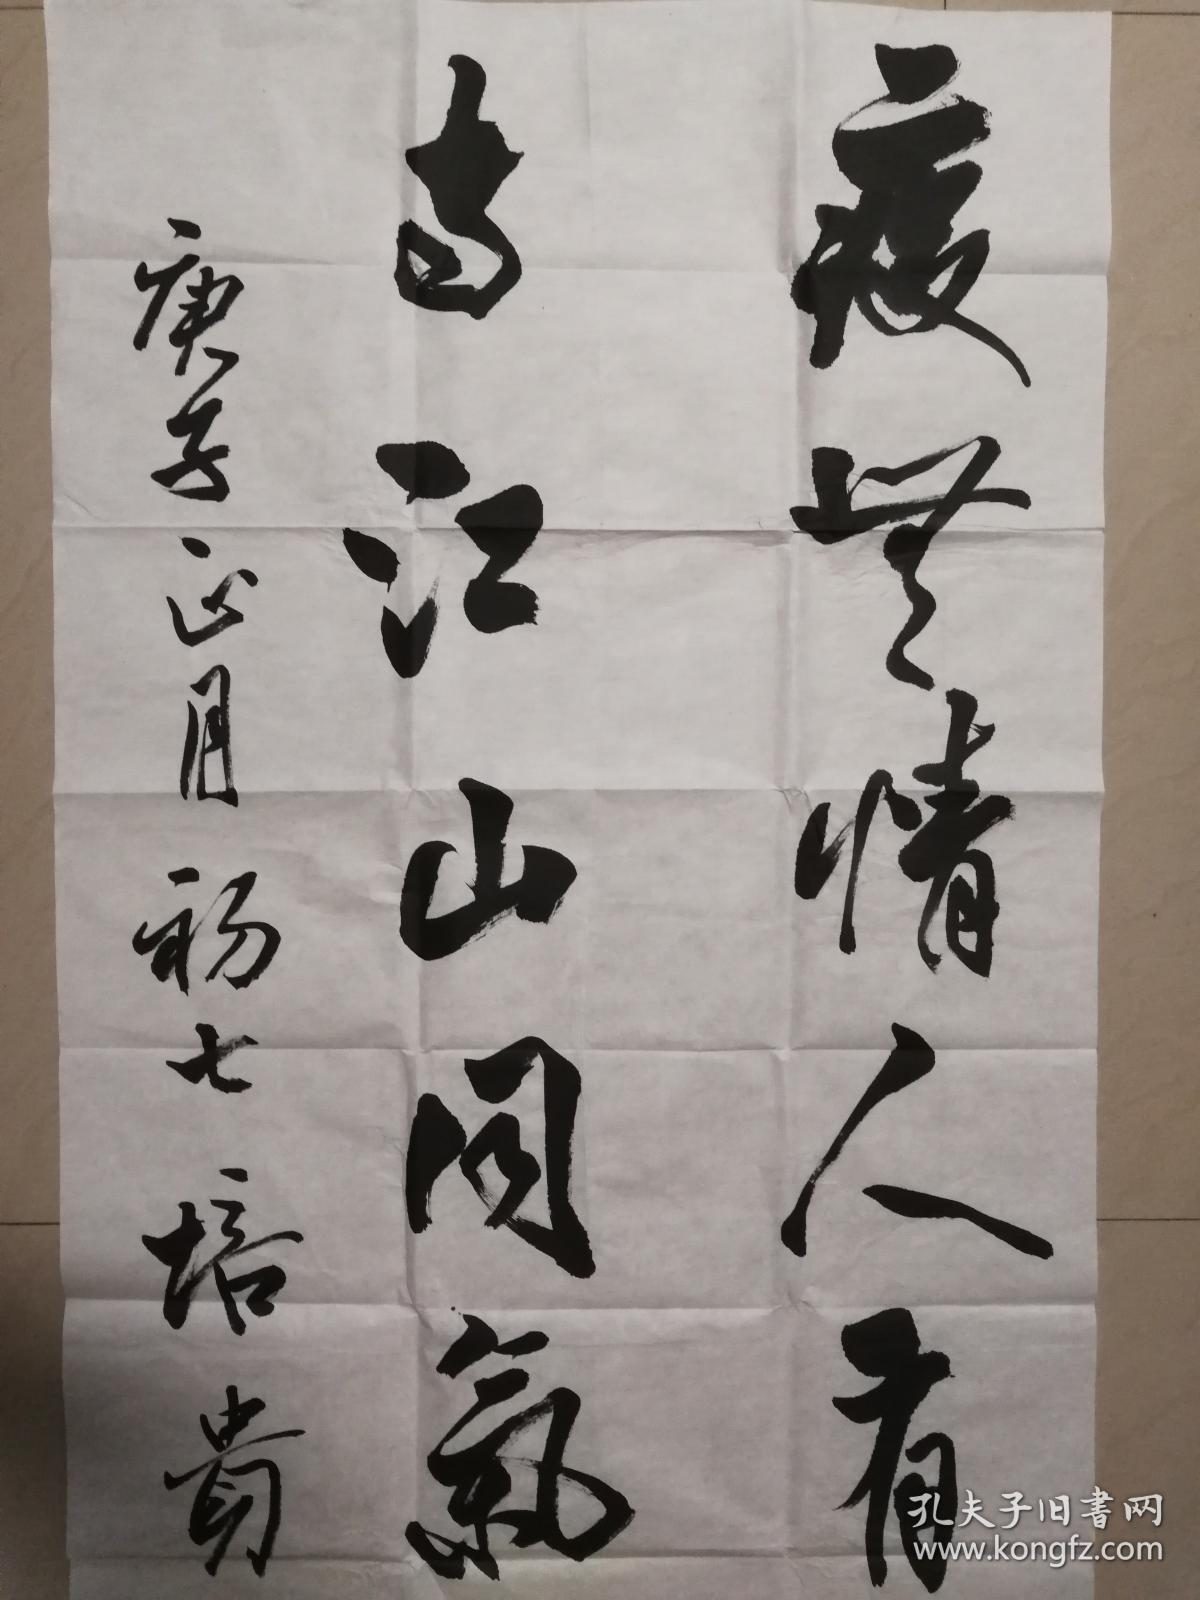 疫無情人有
江山同氣
庚子正月初七培貴
孔夫子旧書网
www.kongfz.com